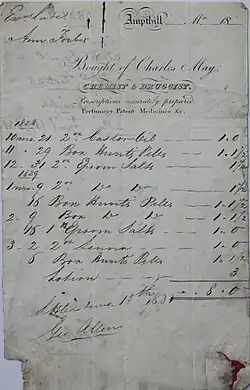 Ann Forbes
Ampthill Mo. 18
Bought of Charles May,
CHEMIST & DRUGGIST,
Prescriptions accurately prepared.
Perfumery, Patent Medicines &c.
1828
10 mo 21 2 oz Castor Oil 1.0
11 - 29 Box Hunts Piles 1.1½
12 - 31 2 oz Epsom Salts 1½
1829
1 mo - 9 2 oz Do Do 1½
16 Box Hunts Piles 1.1½
2 - 9 Box Do Do 1.1½
16 1 lb Epsom Salts 1.0
3 - 2 2 oz Senna 1.0
6 Box Hunts Piles 1.1½
Lotion 3
8.0
Settled June 13th 1831
Geo Allen